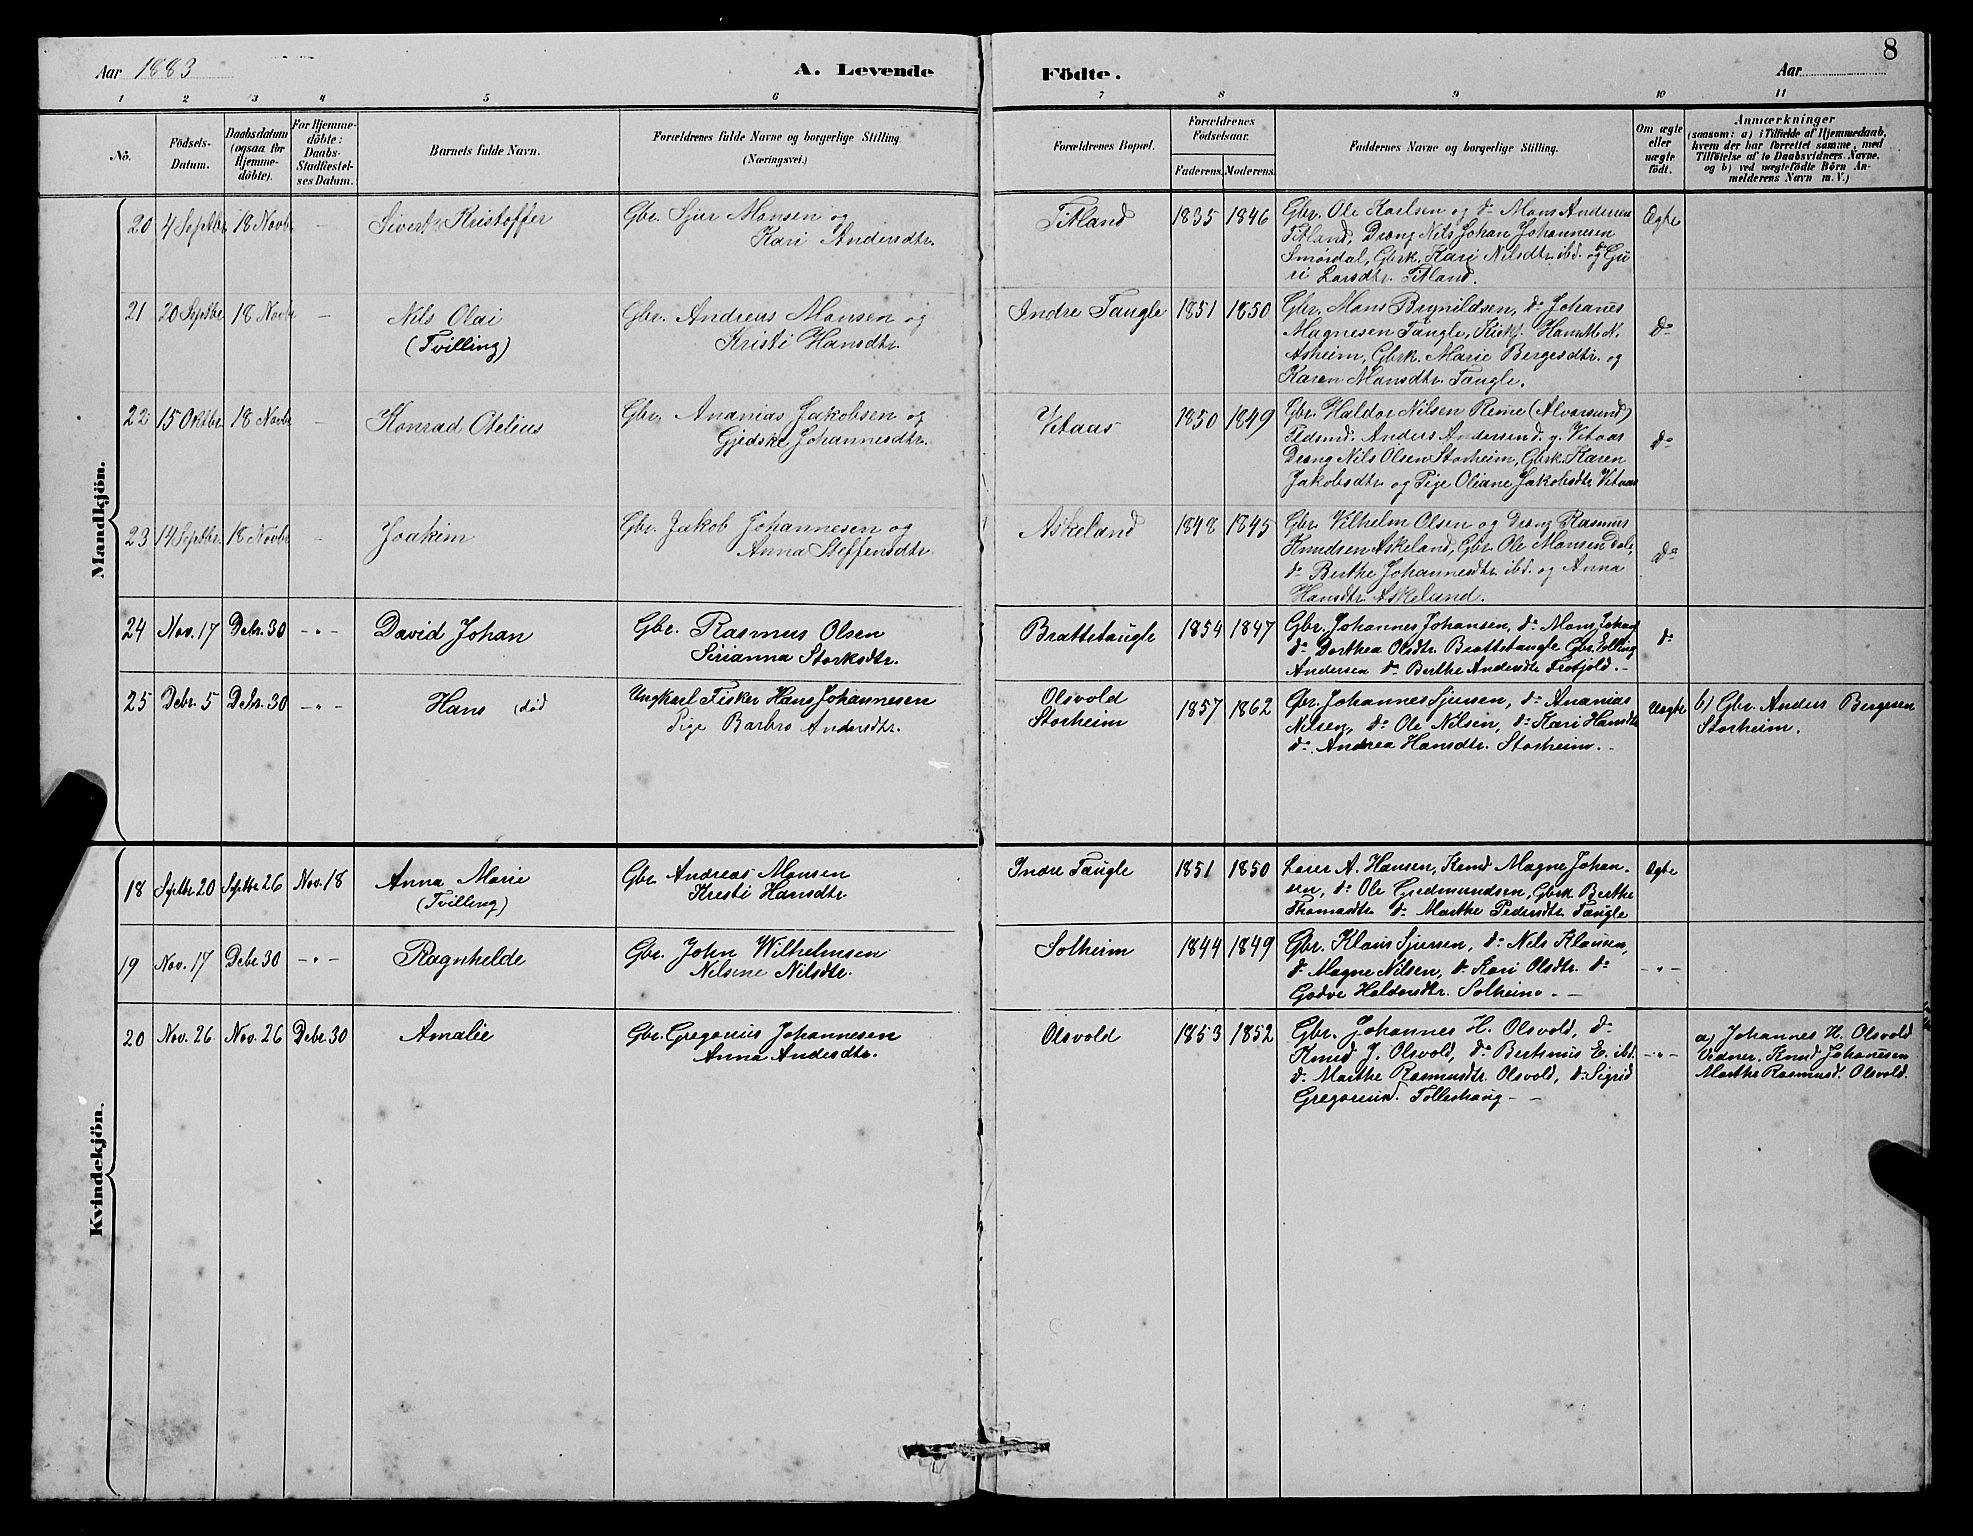 8
Aar 1883
A. Levende
Födte.
Aar
1 2 3 4 5 6 7 8 9 10 11
No.
Födsels-
Datum.
Daabsdatum
(ogsaa for
Hjemme-
döbte).
For Hjemme-
döbte:
Daabs-
Stadfæstel-
ses Datum.
Barnets fulde Navn.
Forældrenes fulde Navne og borgerlige Stilling.
(Næringsvei.)
Forældrenes Bopæl.
Forældrenes
Födselsaar.
Faderens. Moderens.
Faddernes Navne og borgerlige Stilling.
Om ægte
eller
uægte
födt.
Anmærkninger
(saasom: a) i Tilfælde af Hjemmedaab,
hvem der har forrettet samme, med
Tilföielse af to Daabsvidners Navne,
og b) ved uægtefödte Börn An-
melderens Navn m. V.)
Mandkjön.
20 4 Septbr 18 Novbr - Sivert Kristoffer
Gbr. Sjur Monsen og
Kari Andersdtr.
Titland 1835 1846
Gbr. Ole Karlsen og do Mons Andersen
Titland, Dreng Nils Johan Johannesen
Smördal, Gbrk. Kari Nilsdtr. ibd. og do Gu
ri Larsdtr. Titland.
Ægte
21 20 Septbr 18 Novbr - Nils Olai
(Tvilling)
Gbr. Andreas Monsen og
Kristi Hansdtr.
Indre Taugle 1851 1850
Gbr. Mons Brynildsen, do Johanes
Magnesen Taugle, Kirks. N.
Asheim, Gbrk. Marie Bergesdtr. og
Karen Monsdtr. Taugle.
do
22 15 Oktbr. 18 Novbr - Konrad Otelius
Gbr. Ananias Jakobsen og
Gjedske Johannesdtr.
Vetaas 1850 1849
Gbr. Haldor Nilsen Reme (Alversund)
Anders Andersen d. y. Vetaas
Dreng Nils Olsen Storheim, Gbrk. Karen
Jakobsdtr. og Pige Oliane Jakobsdtr. Vetaas
do
23 14 Septbr. 18 Novbr - Joakim
Gbr. Jakob Johannesen og
Anna Steffensdtr
Askeland 1848 1845
Gbr. Vilhelm Olsen og Dreng Rasmus
Knudsen Askeland, Gbr. Ole Monsen Dale,
do Berthe Johannesdtr. ibd. og Anna
Hansdtr. Askeland.
do
24 Nov. 17 Debr. 30 -"- David Johan
Gbr. Rasmus Olsen
Sirianna Storksdtr.
Brattetaugle 1854 1847
Gbr. Johannes Johansen, do Mons Johan
do Dorthea Olsdtr. Brattetaugle Gbr. Elling
Andersen do Berthe Andersdtr Frotjold. -
do
25 Debr. 5 Debr. 30 -"- Hans (död
Ungkarl Fisker Hans Johannesen
Pige Barbro Andersdtr.
Olsvold
Storheim
1857 1862
Gbr. Johannes Sjursen, do Ananias
Nilsen, do Ole Nilsen, do Kari Hansdtr
do Andrea Hansdtr. Storheim. -
Uægte
b) Gbr. Anders Bergesen
Storheim.
Kvindekjön.
18 Septbr. 20 Septbr 26 Nov. 18 Anna Marie
(Tvilling)
Gbr. Andreas Monsen
Kristi Hansdtr
Indre Taugle 1851 1850
Lærer A. Hansen, Knud Magne Johan-
sen, do Ole Gudmundsen, Gbrk Berthe
Thomasdtr do Marthe Pedersdtr. Taugle
Ægte
19 Nov. 17 Debr. 30 -"- Ragnhelde
Gbr. John Wilhelmsen
Nilsine Nilsdtr.
Solheim 1844 1849
Gbr. Klaus Sjursen, do Nils Klausen,
do Magne Nilsen, do Kari Olsdtr. do
Godve Haldorsdtr. Solheim. -
-"-
20 Nov. 26 Nov. 26 Debr. 30 Amalie
Gbr. Gregorius Johannesen
Anna Andersdtr.
Olsvold 1853 1852
Gbr. Johannes H. Olsvold, do
Knud J. Olsvold, do Bertinius E. ibd.
do Marthe Rasmusdtr. Olsvold, do Sigrid
Gregoriusd. Tolleshaug - -
-"-
a) Johannes H. Olsvold
Vidner. Knud Johanesen
Marthe Rasmusd. Olsvold.